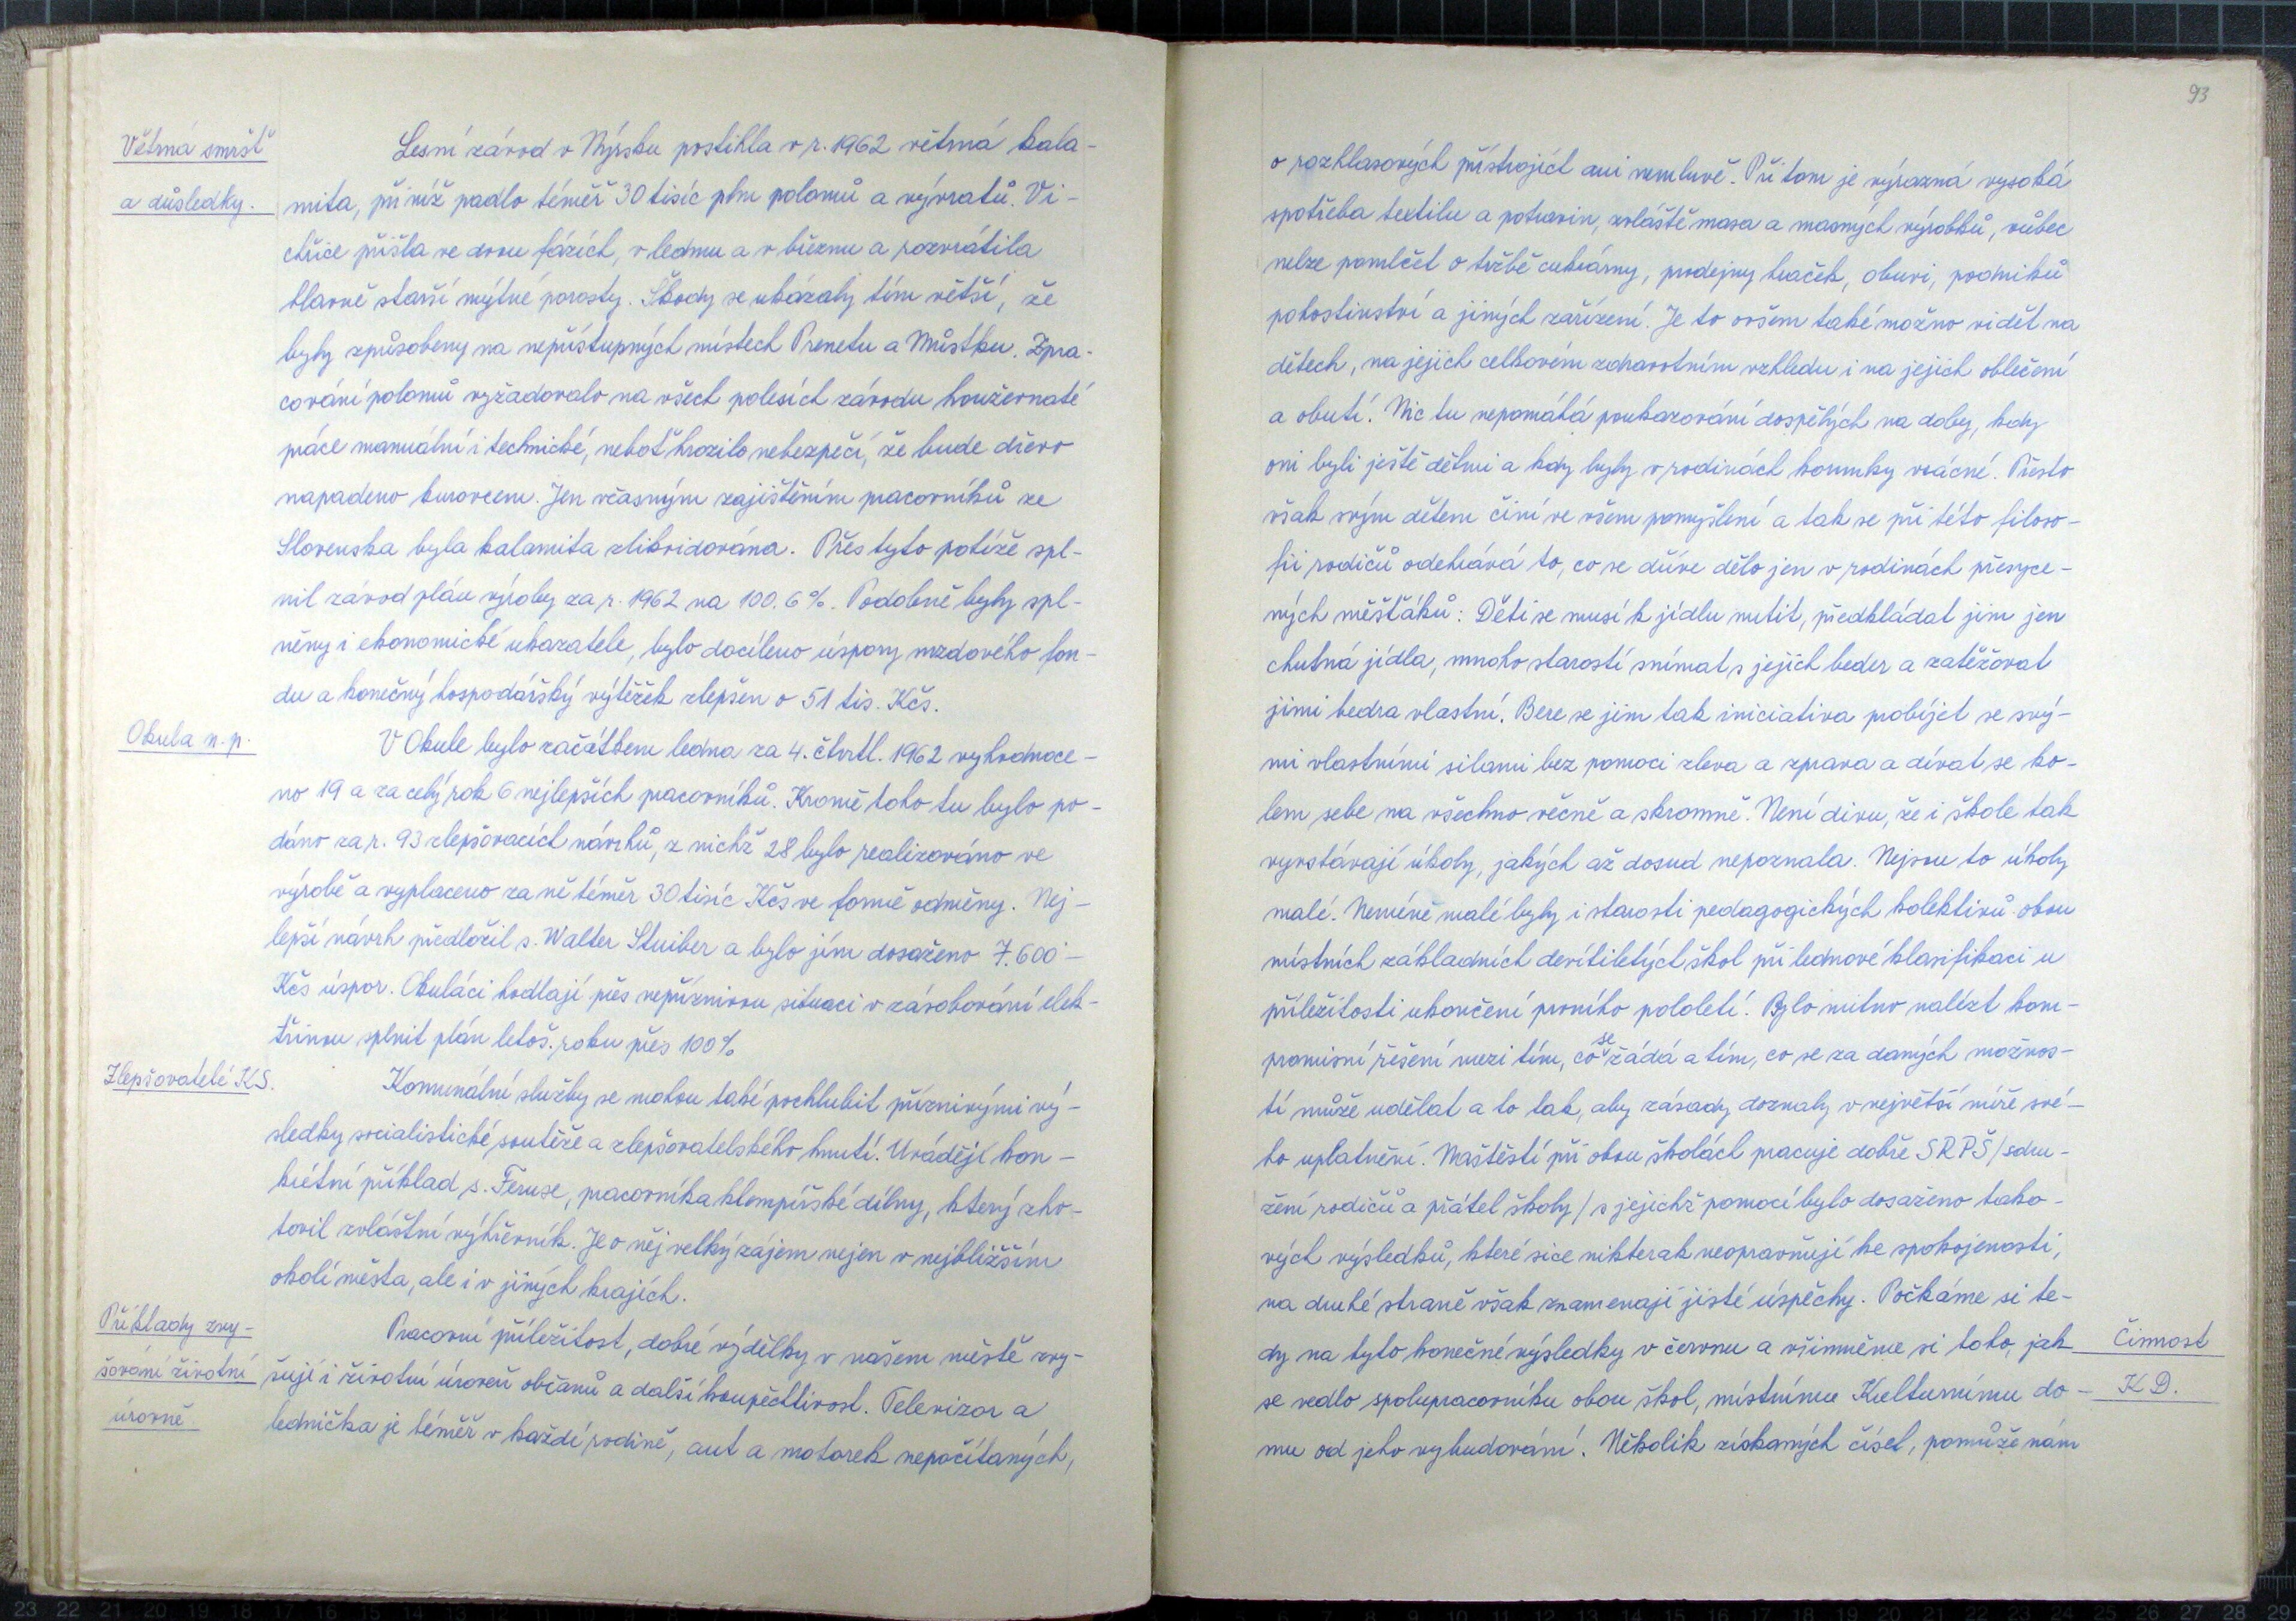 Větrná smršť
a důsledky.
Lesní závod v Nýrsku postihla v r. 1962 větrná kala-
mita, při níž padlo téměř 30 tisíc plm polomů a vývratů. Vi-
chřice přišla ve dvou fázích, v lednu a v březnu a rozvrátila
hlavně starší mýtné porosty. Škody se ukázaly tím větší, že
byly způsobeny na nepřístupných místech Prenetu a Můstku. Zpra-
cování polomů vyžadovalo na všech polesích závodu houževnaté
práce manuální i technické, neboť hrozilo nebezpečí, že bude dřevo
napadeno kurovcem. Jen včasným zajištěním pracovníků ze
Slovenska byla kalamita zlikvidována. Přes tyto potíže spl-
nil závod plán výroby za r. 1962 na 100.6%. Podobně byly spl-
něny i ekonomické ukazatele, bylo docíleno úspory mzdového fon-
du a konečný hospodářský výtěžek zlepšen o 51 tis. Kčs.
Okula n.p.
V Okule bylo začátkem ledna za 4. čtvrtl. 1962 vyhodnoce-
no 19 a za celý rok 6 nejlepších pracovníků. Kromě toho tu bylo po-
dáno za r. 93 zlepšovacích návrhů, z nichž 28 bylo realizováno ve
výrobě a vyplaceno za ně téměř 30 tisíc Kčs ve formě odměny. Nej-
lepší návrh předložil s. Walter Stuiber a bylo jím dosaženo 7.600-
Kčs úspor. Okuláci hodlají přes nepříznivou situaci v zásobování elek-
třinou splnit plán letoš. roku přes 100%
Zlepšovatelé KS.
Komunální služby se mohou také pochlubit příznivými vý-
sledky socialistické soutěže a zlepšovatelského hnutí. Uvádějí kon-
krétní příklad s. Feruse, pracovníka klempířské dílny, který zho-
tovil zvláštní výhřevník. Je o něj velký zájem nejen v nejbližším
okolí města, ale i v jiných krajích.
Příklady zvy-
šování životní
úrovně
Pracovní příležitost, dobré výdělky v našem městě zvy-
šují i životní úroveň občanů a další koupěchtivost. Televizor a
lednička je téměř v každé rodině, aut a motorek nepočítaných,
93
o rozhlasových přístrojích ani nemluvě. Při tom je výrazná vysoká
spotřeba textilu a potravin, zvláště masa a masných výrobků, vůbec
nelze pomlčet o tržbě cukrárny, prodejny hraček, obuvi, podniků
pohostinství a jiných zařízení. Je to ovšem také možno vidět na
dětech, na jejich celkovém zdravotním vzhledu i na jejich oblečení
a obutí. Nic tu nepomáhá poukazování dospělých na doby, kdy
oni byli ještě dětmi a kdy byly v rodinách korunky vzácné. Přesto
však svým dětem činí ve všem pomyšlení a tak se při této filoso-
fii rodičů odehrává to, co se dříve dělo jen v rodinách přesyce-
ných měšťáků: Děti se musí k jídlu nutit, předkládat jim jen
chutná jídla, mnoho starostí snímat s jejich beder a zatěžovat
jimi bedra vlastní. Bere se jim tak iniciativa probíjet se svý-
mi vlastními silami bez pomoci zleva a zprava a dívat se ko-
lem sebe na všechno věčně a skromně. Není divu, že i škole tak
vyvstávají úkoly, jakých až dosud nepoznala. Nejsou to úkoly
malé. Neméně malé byly i starosti pedagogických kolektivů obou
místních základních devítiletých škol při lednové klasifikaci u
příležitosti ukončení prvního pololetí. Bylo nutno nalézt kom-
promisní řešení mezi tím, co se žádá a tím, co se za daných možnos-
tí může udělat a to tak, aby zásady doznaly v největší míře své-
ho uplatnění. Naštěstí při obou školách pracuje dobře SRPŠ /sdru-
žení rodičů a přátel školy/ s jejichž pomocí bylo dosaženo tako-
vých výsledků, které sice nikterak neopravňují ke spokojenosti,
na druhé straně však znamenají jisté úspěchy. Počkáme si te-
dy na tyto konečné výsledky v červnu a všimněme si toho, jak
se vedlo spolupracovníku obou škol, místnímu Kulturnímu do-
mu od jeho vybudování. Několik získaných čísel, pomůže nám
Činnost
K D.